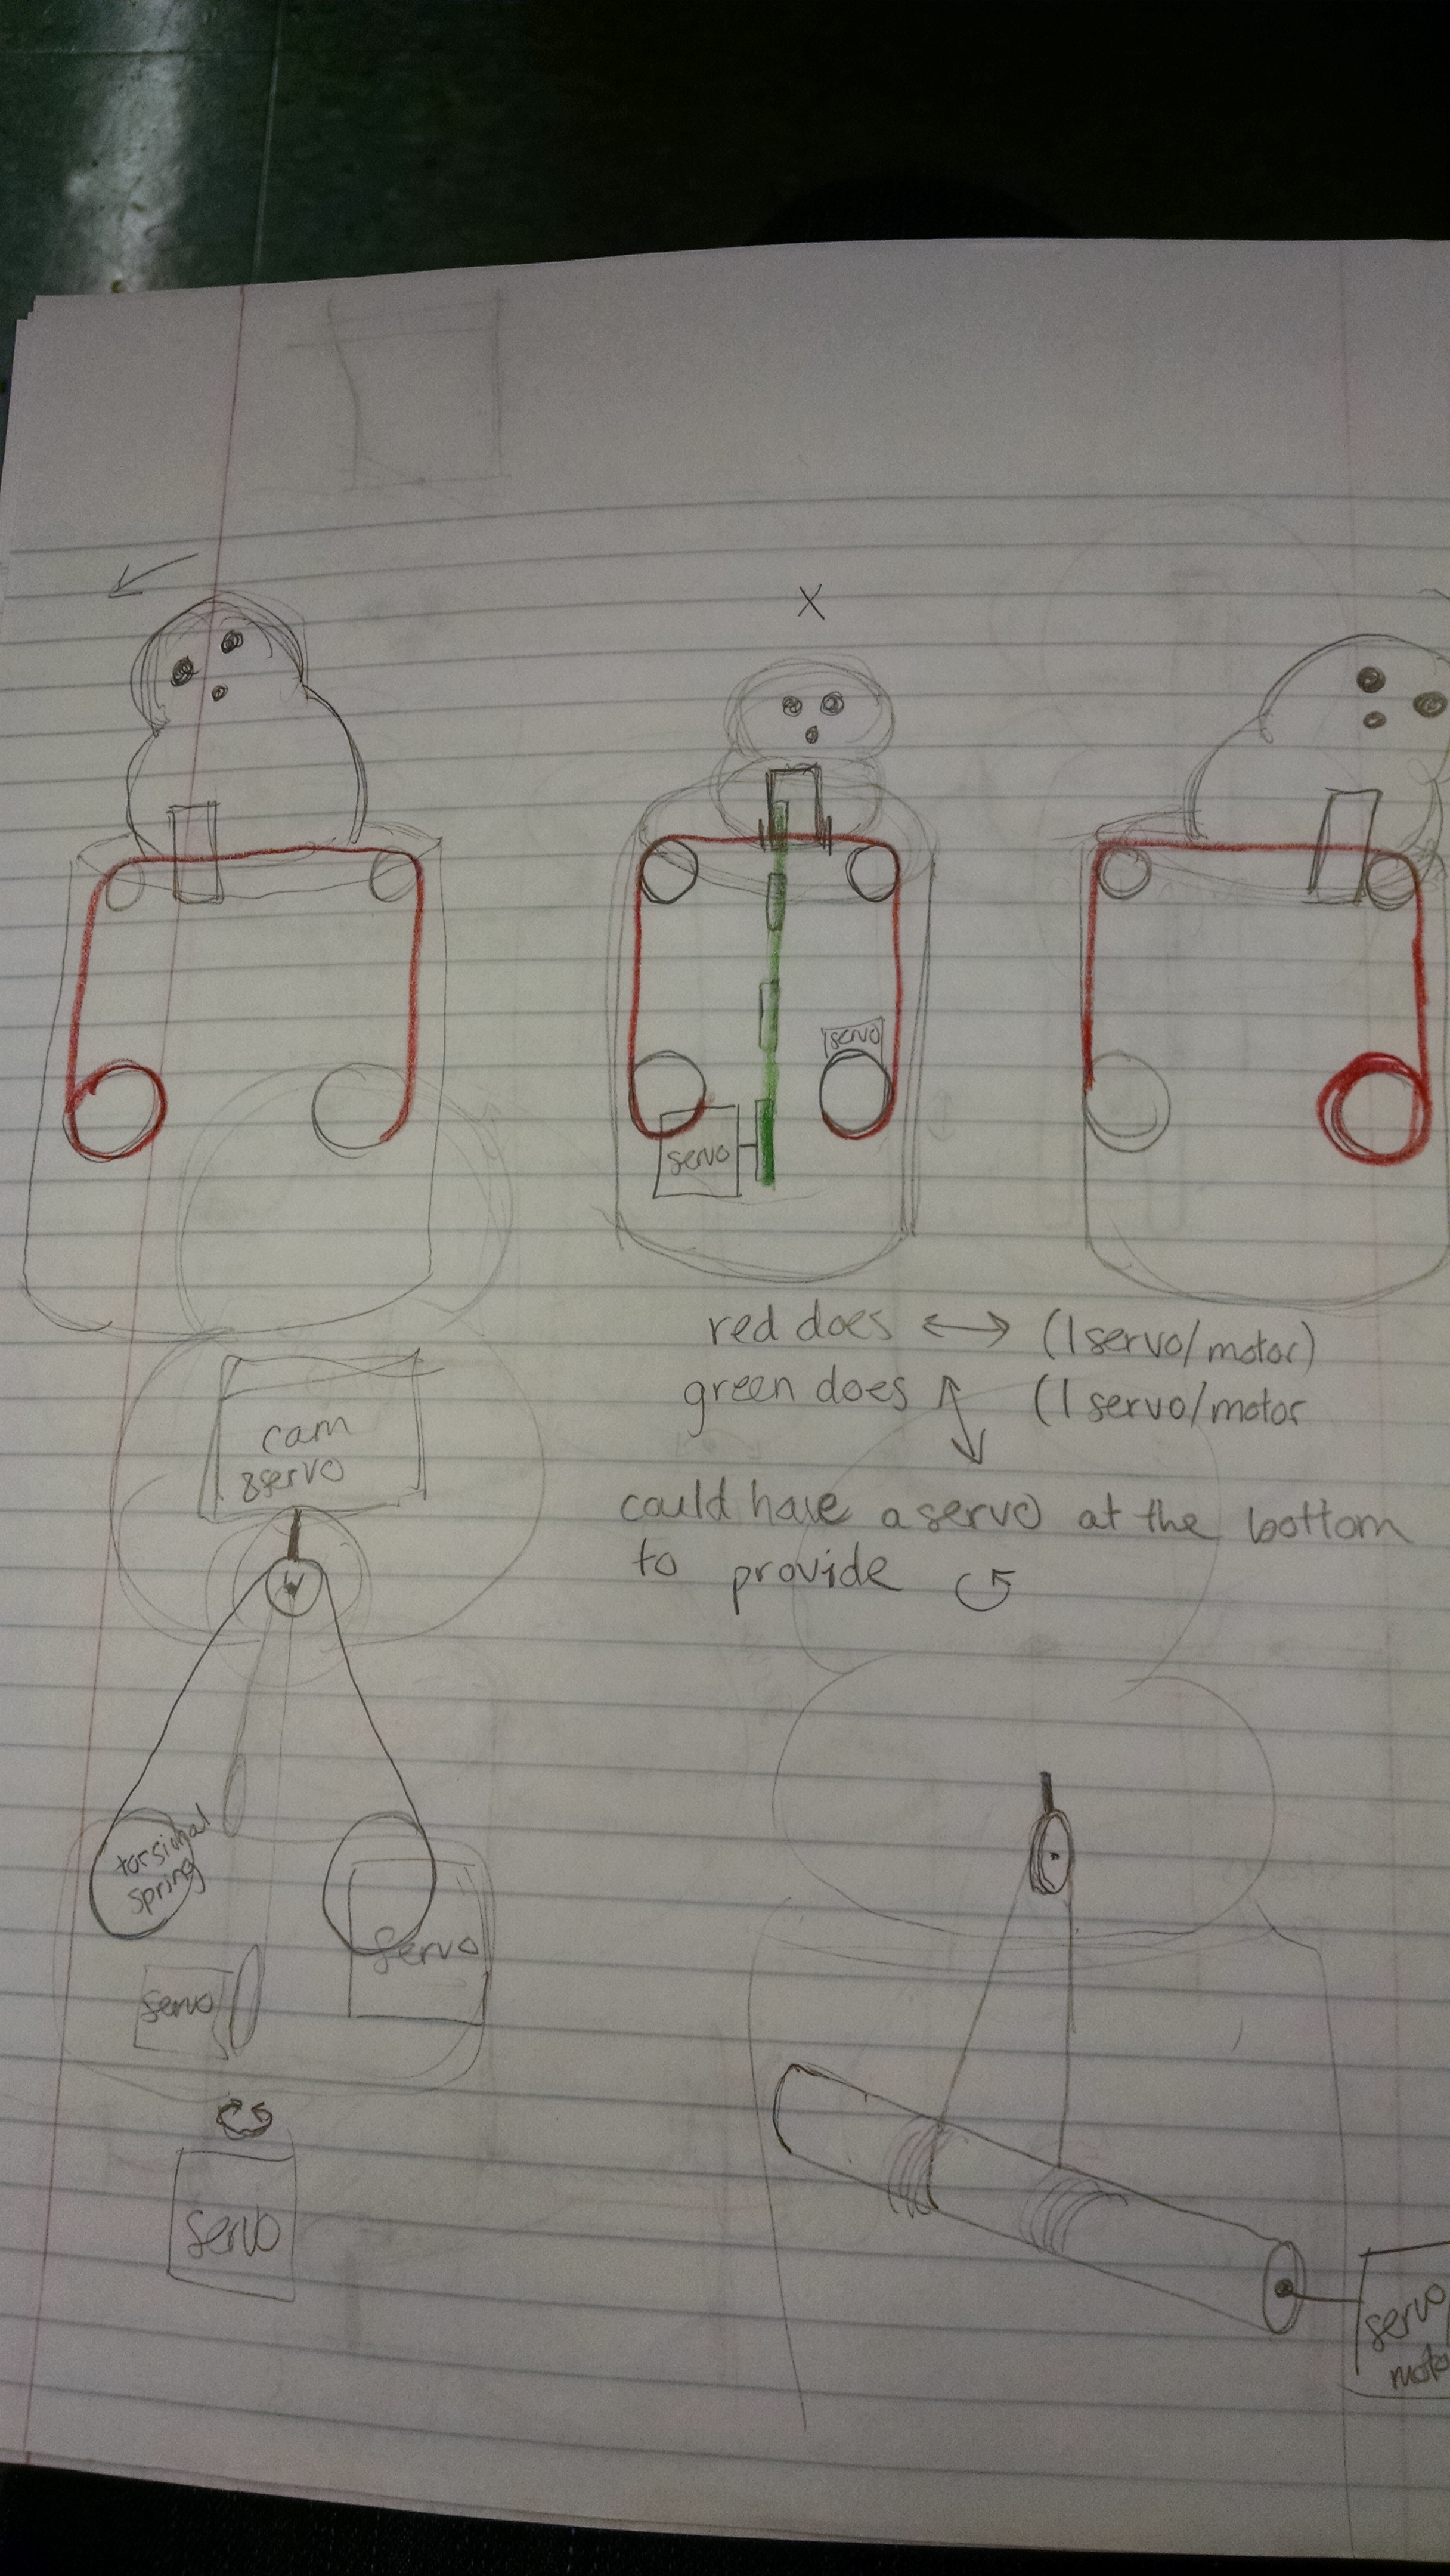 X
servo
servo
red does ↔ (1 servo/motor)
green does ↕ (1 servo/motor
could have a servo at the bottom
to provide ↺
cam
& servo
torsional
spring
servo
servo
servo
servo